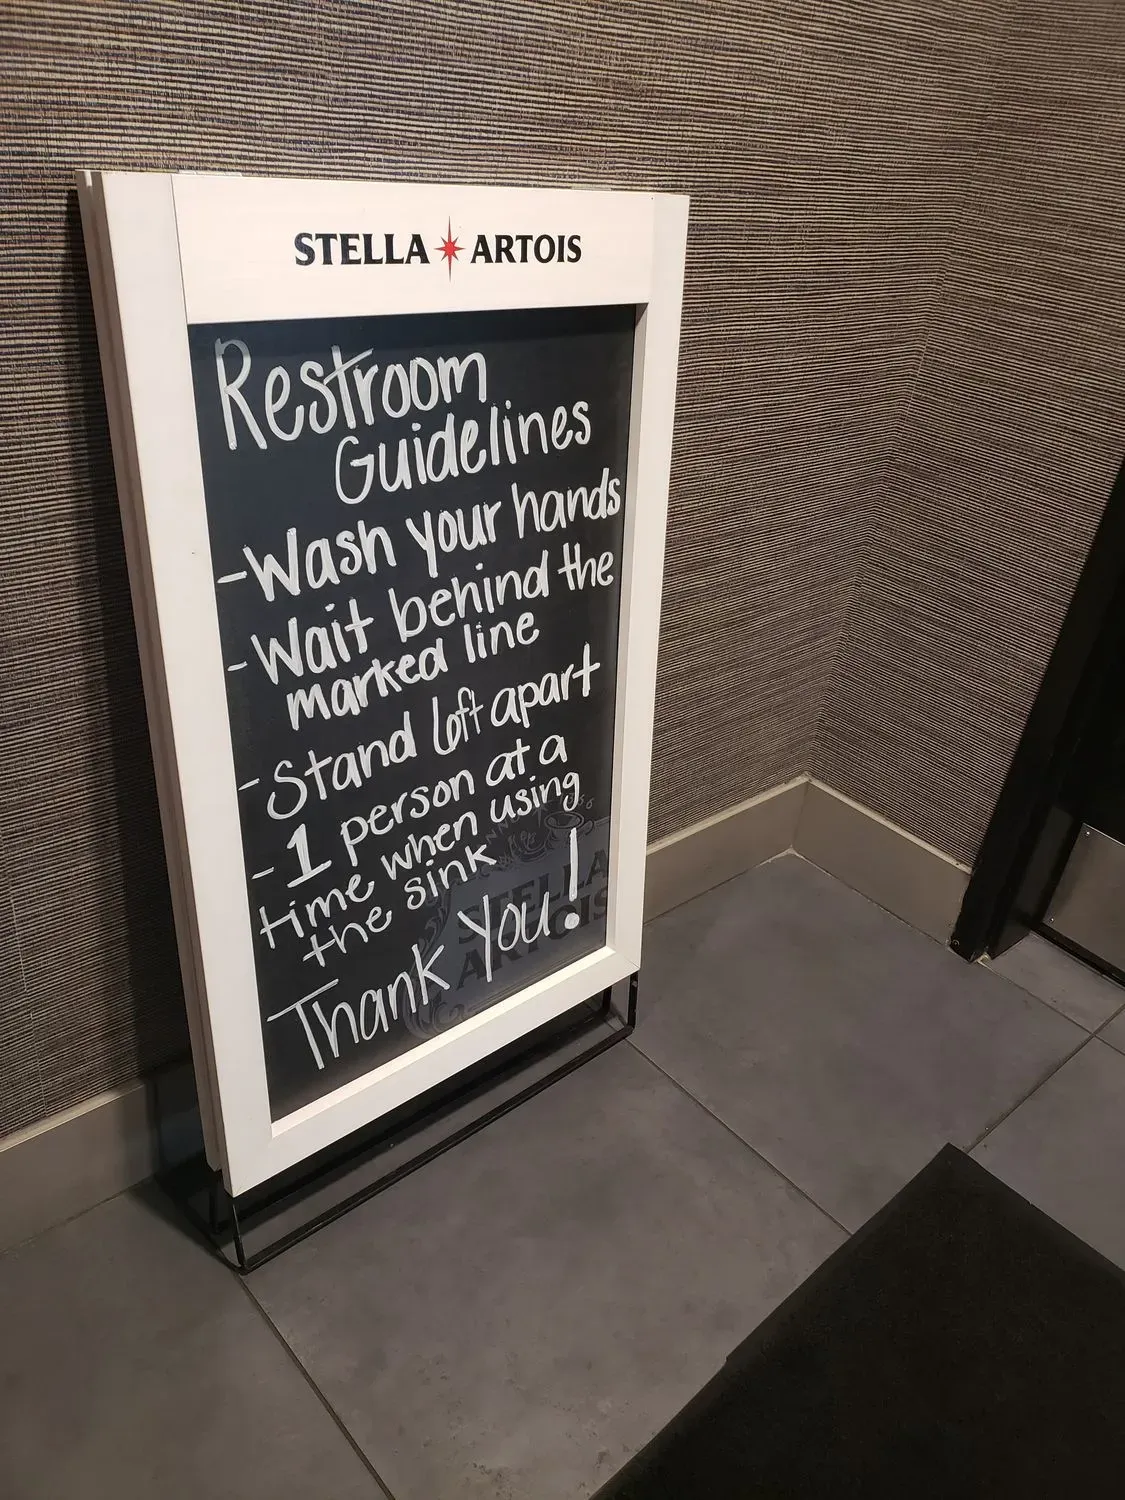 STELLA ARTOIS
Restroom
Guidelines
-Wash your hands
-Wait behind the
marked line
-Stand 6ft apart
-1 person at a
time when using
the sink
Thank You!
STELLA
ARTOIS